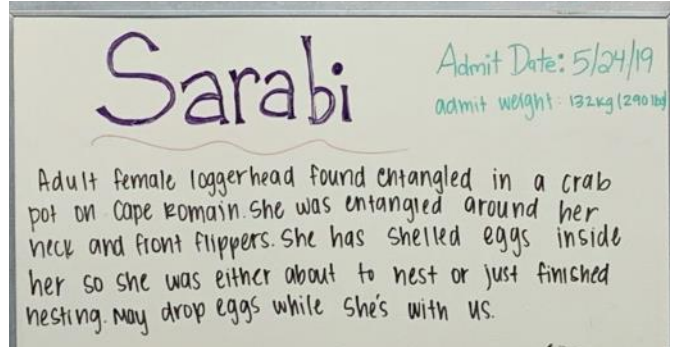 Sarabi
Admit Date: 5/24/19
admit weight: 132kg (290 lbs)
Adult female loggerhead found entangled in a crab
pot on Cape Romain. She was entangled around her
neck and front flippers. She has shelled eggs inside
her so she was either about to nest or just finished
nesting. May drop eggs while she's with us.